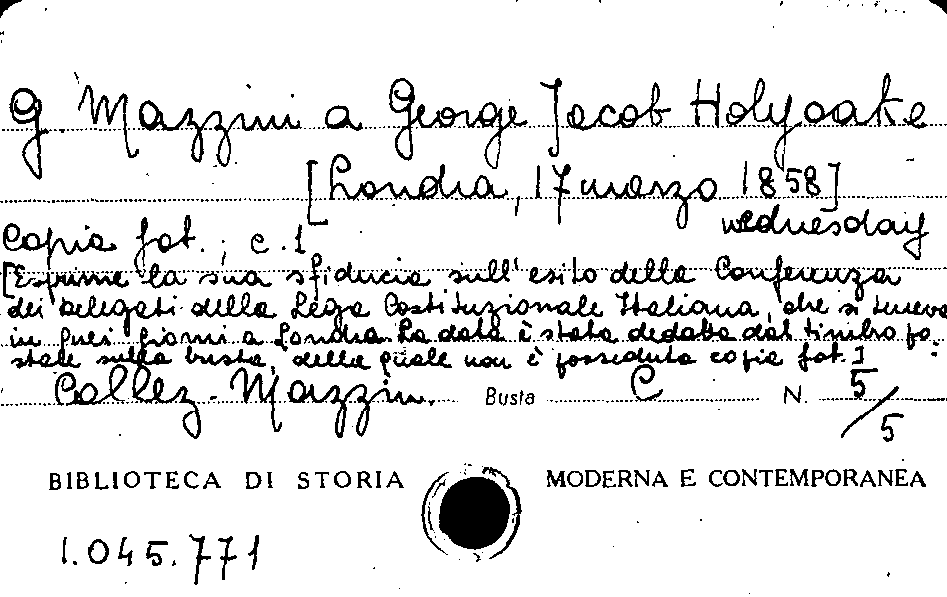 G. Mazzini a George Jacob Holyoake
[Londra, 17 marzo 1858]
wednesday
Copia fot.; c. 1
[Esprime la sua sfiducia sull'esito della Conferenza
dei delegati della Lega Costituzionale Italiana, che si teneva
in quei giorni a Londra. La data è stata dedotta dal timbro po-
stale sulla busta, della quale non è posseduta copia fot.]
Collez. Mazzin. Busta C N. 5/5
BIBLIOTECA DI STORIA MODERNA E CONTEMPORANEA
1.045.771